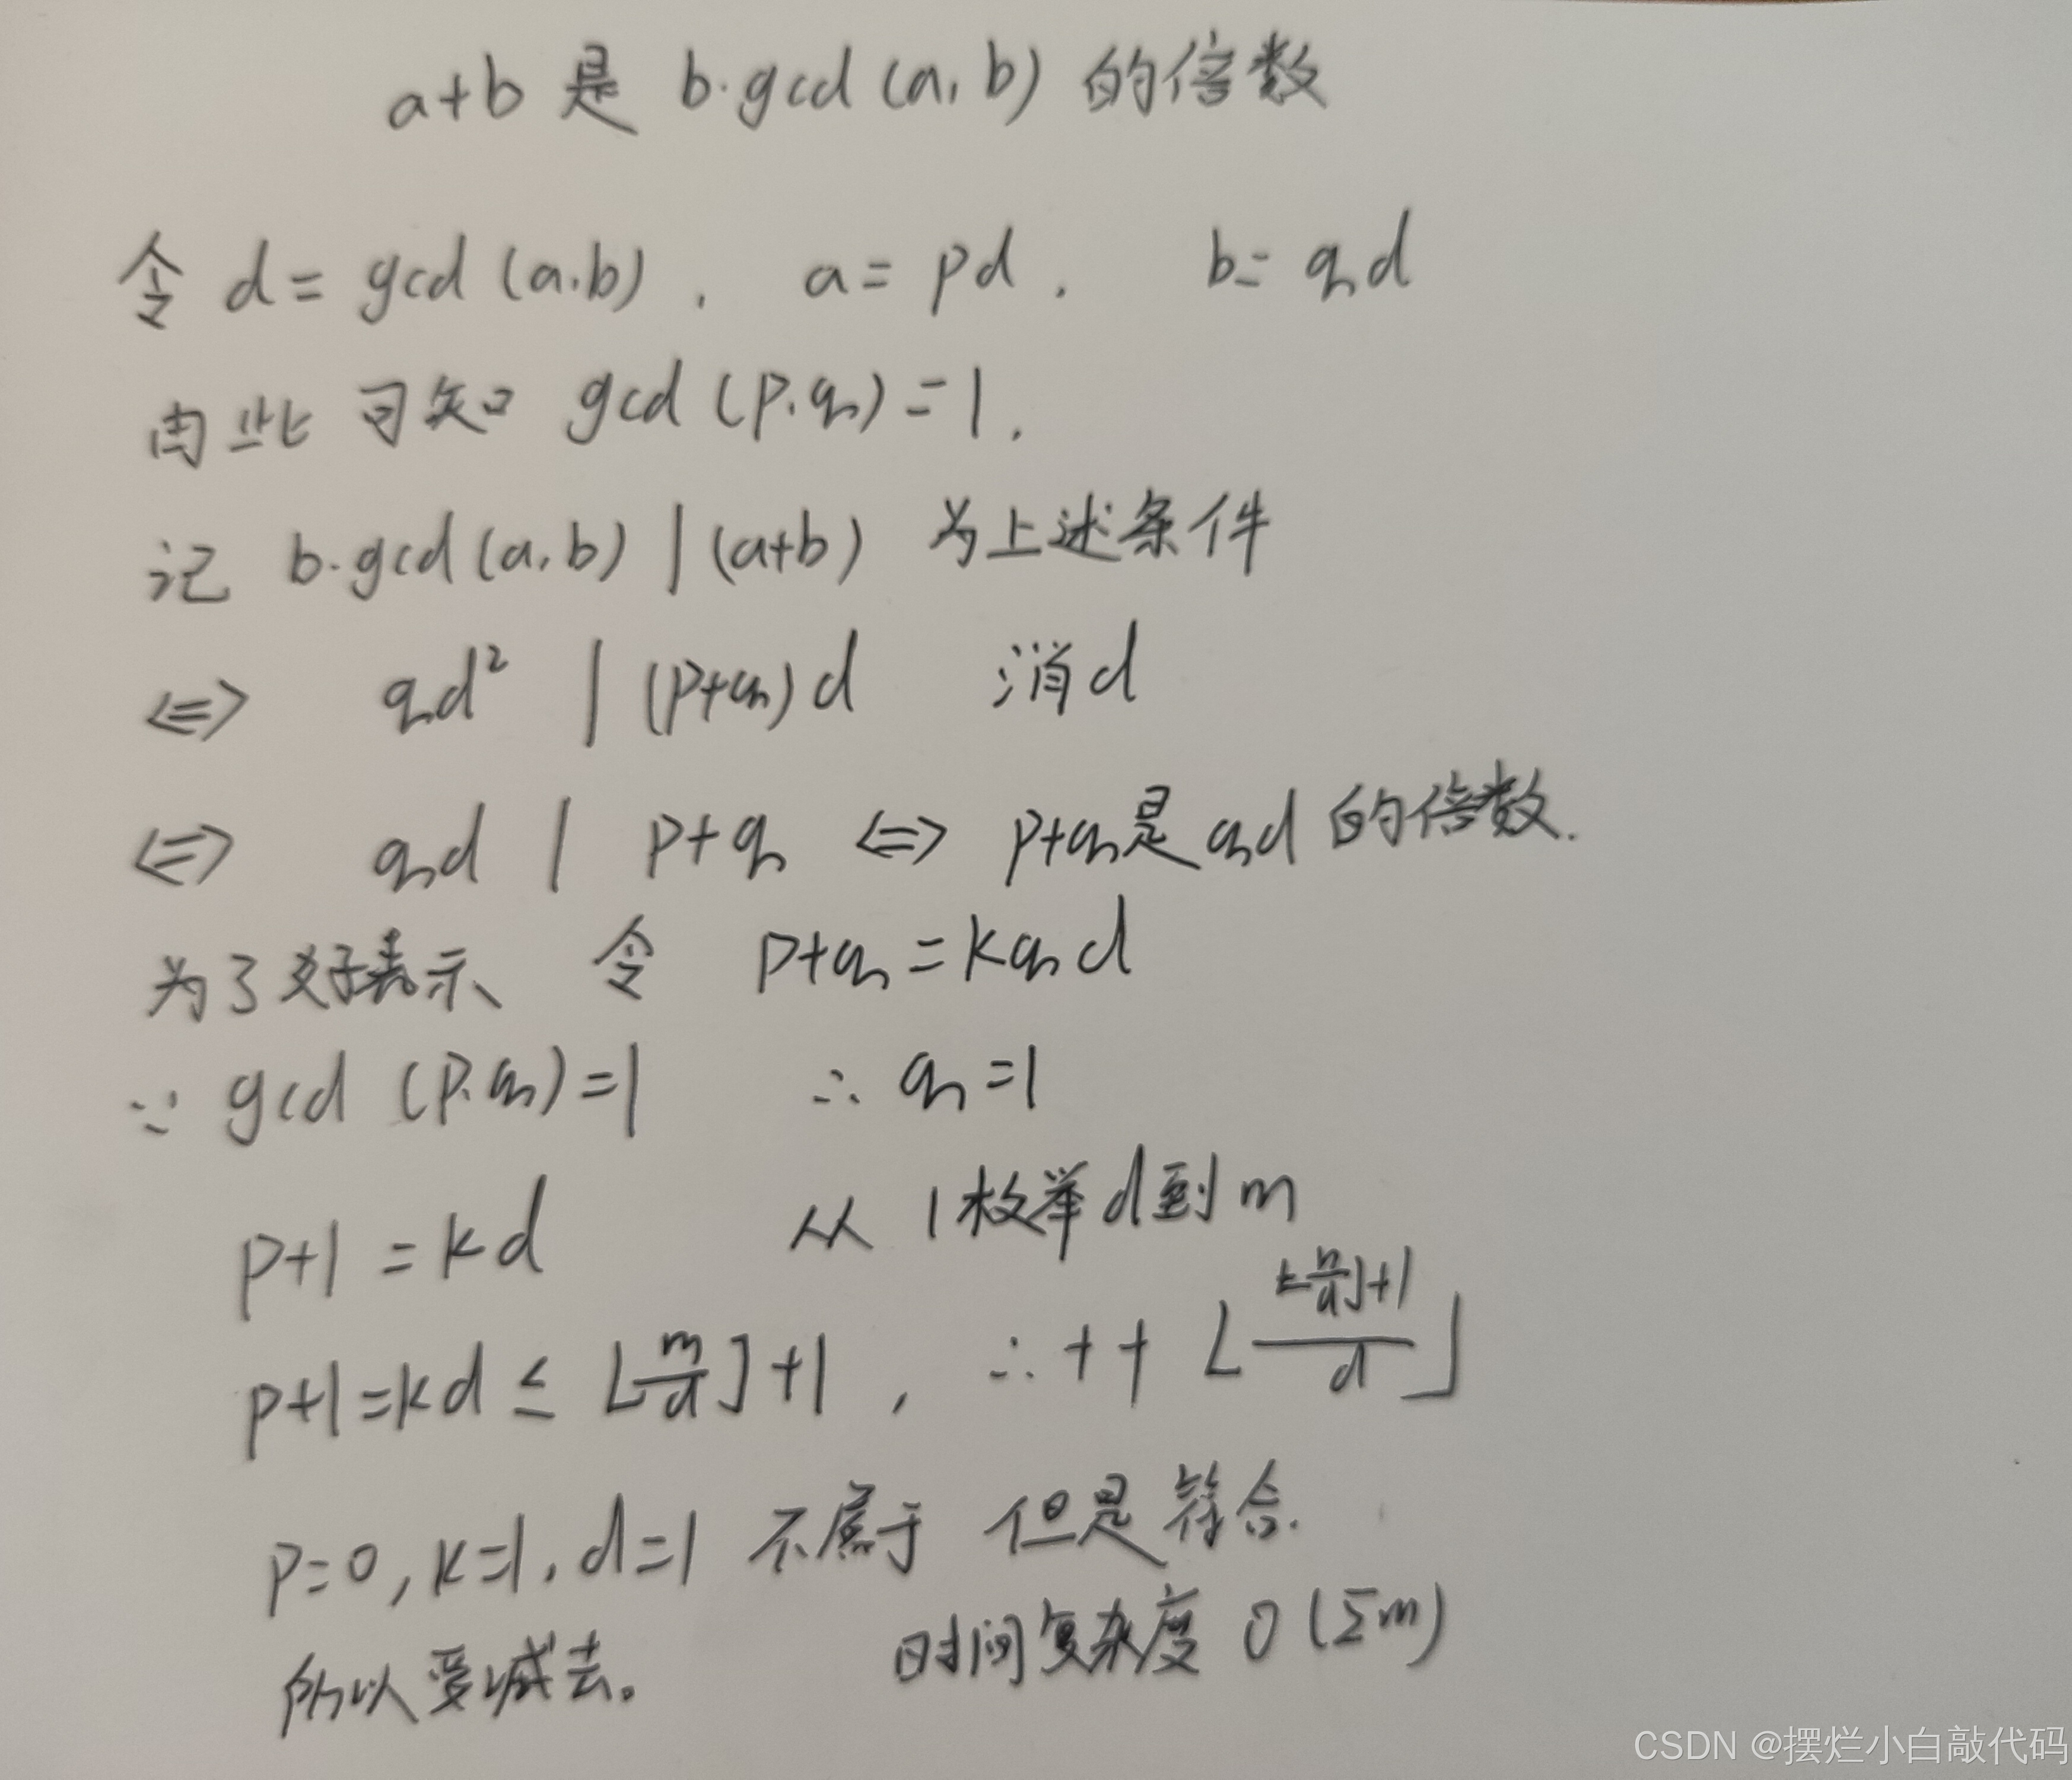 a+b 是 b·gcd(a,b) 的倍数
令 d = gcd(a,b), a = pd, b = qd
由此可知 gcd(p,q)=1,
记 b·gcd(a,b) | (a+b) 为上述条件
⟺ qd² | (p+q)d 消d
⟺ qd | p+q ⟺ p+q是qd的倍数.
为了好表示、令 p+q = kqd
∵ gcd(p,q)=1 ∴ q=1
p+1 = kd 从1枚举d到m
p+1=kd ≤ ⌊m/d⌋+1, ∴ ++ ⌊(⌊n/d⌋+1)/d⌋
p=0, k=1, d=1 不属于 但是符合.
所以要减去。 时间复杂度 O(Σm)
CSDN @摆烂小白敲代码